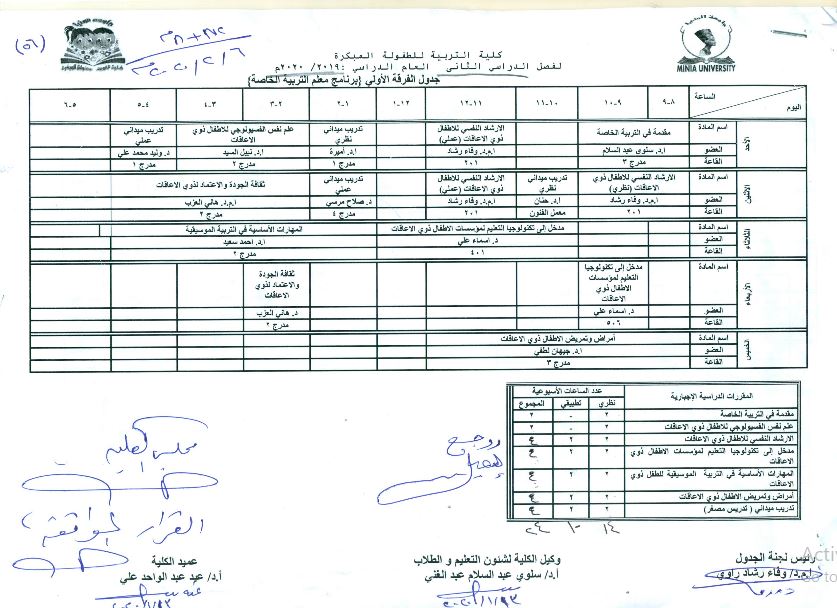 (٥٦)
٢٠٢٠/٢/٦م
MINIA UNIVERSITY
كلية التربية للطفولة المبكرة
لفصل الدراسي الثاني العام الدراسي :٢٠١٩/ ٢٠٢٠م
جدول الفرقة الأولي {برنامج معلم التربية الخاصة}
الساعة
اليوم
٨-٩ ٩-١٠ ١٠-١١ ١١-١٢ ١٢-١ ١-٢ ٢-٣ ٣-٤ ٤-٥ ٥-٦
الأحد
اسم المادة مقدمة في التربية الخاصة الارشاد النفسي للاطفال ذوي الاعاقات (عملي) تدريب ميداني نظري علم نفس الفسيولوجي للاطفال ذوي الاعاقات تدريب ميداني عملي
العضو ا.د. سلوى عبد السلام ا.م.د. وفاء رشاد ا.د. أميرة ا.د. نبيل السيد د. وليد محمد علي
القاعة مدرج ٣ ٢٠١ مدرج ١ مدرج ٢ مدرج ١
الأثنين
اسم المادة الارشاد النفسي للاطفال ذوي الاعاقات (نظري) تدريب ميداني نظري الارشاد النفسي للاطفال ذوي الاعاقات (عملي) تدريب ميداني عملي ثقافة الجودة والاعتماد لذوي الاعاقات
العضو ا.م.د. وفاء رشاد ا.د. حنان ا.م.د. وفاء رشاد د. صلاح مرسي ا.م.د. هاني العزب
القاعة ٢٠١ معمل الفنون ٢٠١ مدرج ٤ مدرج ٢
الثلاثاء
اسم المادة مدخل الى تكنولوجيا التعليم لمؤسسات الاطفال ذوي الاعاقات المهارات الأساسية في التربية الموسيقية
العضو د. اسماء علي ا.د. احمد سعيد
القاعة ٤٠١ مدرج ٢
الأربعاء
اسم المادة مدخل إلى تكنولوجيا التعليم لمؤسسات الاطفال ذوي الاعاقات ثقافة الجودة والاعتماد لذوي الاعاقات
العضو د. أسماء علي د. هاني العزب
القاعة ٥٠٦ مدرج ٢
الخميس
اسم المادة أمراض وتمريض الاطفال ذوي الاعاقات
العضو ا.د. جيهان لطفي
القاعة مدرج ٣
المقررات الدراسية الإجبارية عدد الساعات الأسبوعية
نظري تطبيقي المجموع
مقدمة في التربية الخاصة ٢ - ٢
علم نفس الفسيولوجي للاطفال ذوي الاعاقات ٢ - ٢
الارشاد النفسي للاطفال ذوي الاعاقات ٢ ٢ ٤
مدخل إلى تكنولوجيا التعليم لمؤسسات الاطفال ذوي الاعاقات ٢ ٢ ٤
المهارات الأساسية في التربية الموسيقية للطفل ذوي الاعاقات ٢ ٢ ٤
أمراض وتمريض الاطفال ذوي الاعاقات ٢ ٢ ٤
تدريب ميداني ( تدريس مصغر) ٢ ٢ ٤
١٤ ١٠ ٢٤
روجع
مجلس الكلية
القرار : الموافقة
رئيس لجنة الجدول
ا.م.د/ وفاء رشاد راوي
وكيل الكلية لشئون التعليم و الطلاب
أ.د/ سلوي عبد السلام عبد الغني
عميد الكلية
أ.د/ عيد عبد الواحد علي